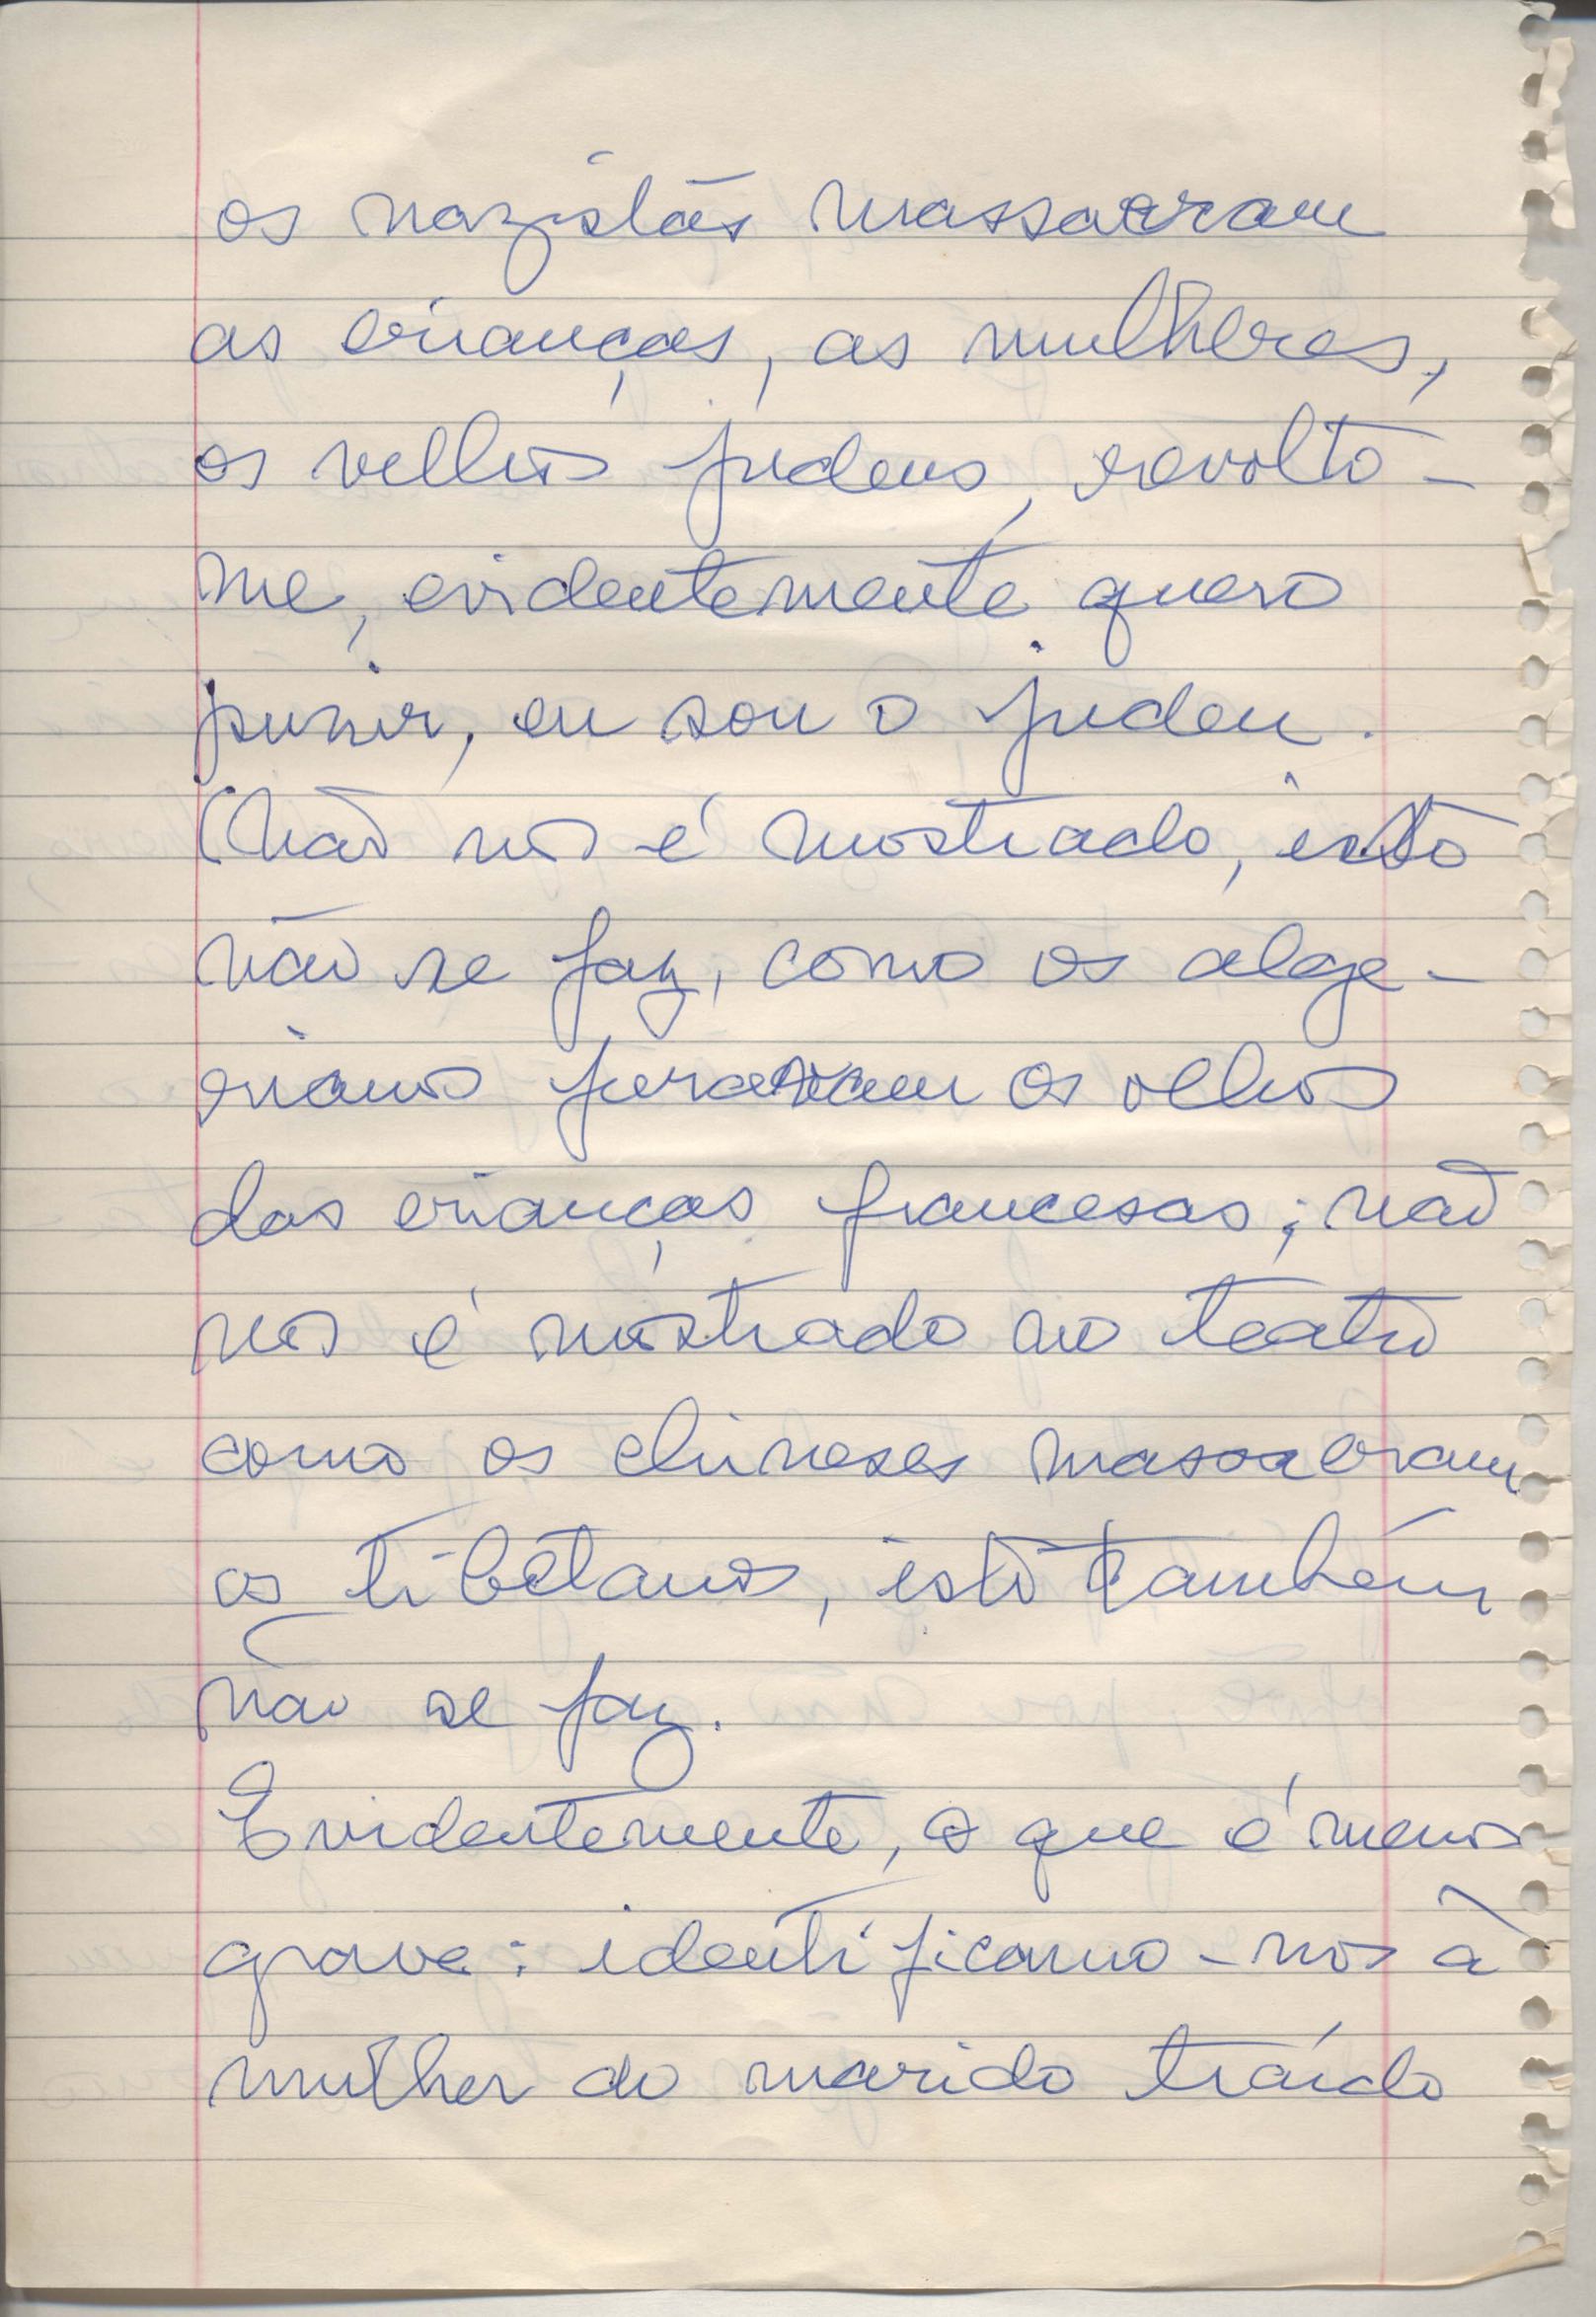 os nazistas massacram
as crianças, as mulheres,
os velhos judeus, revolto-
me, evidentemente quero
punir, eu sou o judeu.
(Não nos é mostrado, isto
não se faz, como os alge-
rianos furavam os olhos
das crianças francesas; não
nos é mostrado no teatro
como os chineses massacram
os tibetanos, isto também
não se faz.
Evidentemente, o que é menos
grave: identificamo-nos à
mulher do marido traído